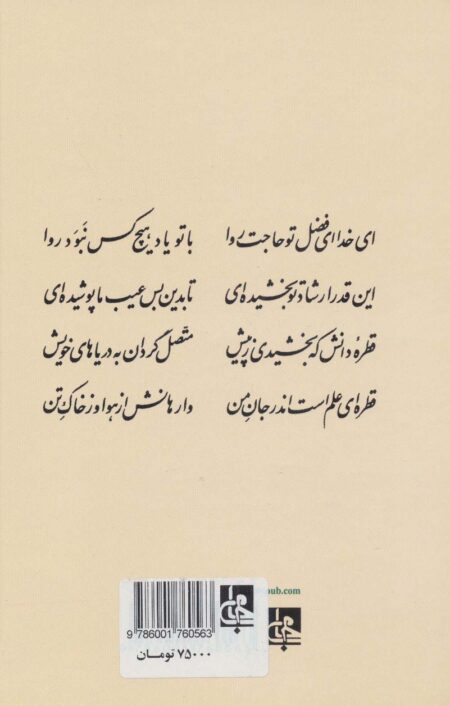 ای خدا ای فضل تو حاجت روا با تو یاد هیچ کس نَبوَد روا
این قدر ارشاد تو بخشیده‌ای تا بدین بس عیب ما پوشیده‌ای
قطرهٔ دانش که بخشیدی ز پیش متّصل گردان به دریاهای خویش
قطره‌ای علم است اندر جانِ من وارهانش از هوا وز خاکِ تن
pub.com
9 786001 760563
۷۵۰۰۰ تومـان